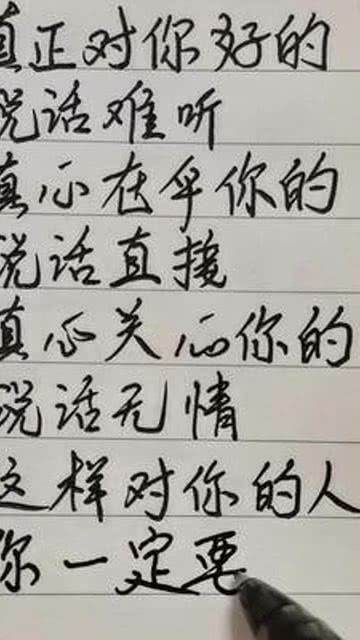 真正对你好的
说话难听
真心在乎你的
说话直接
真心关心你的
说话无情
这样对你的人
你一定要